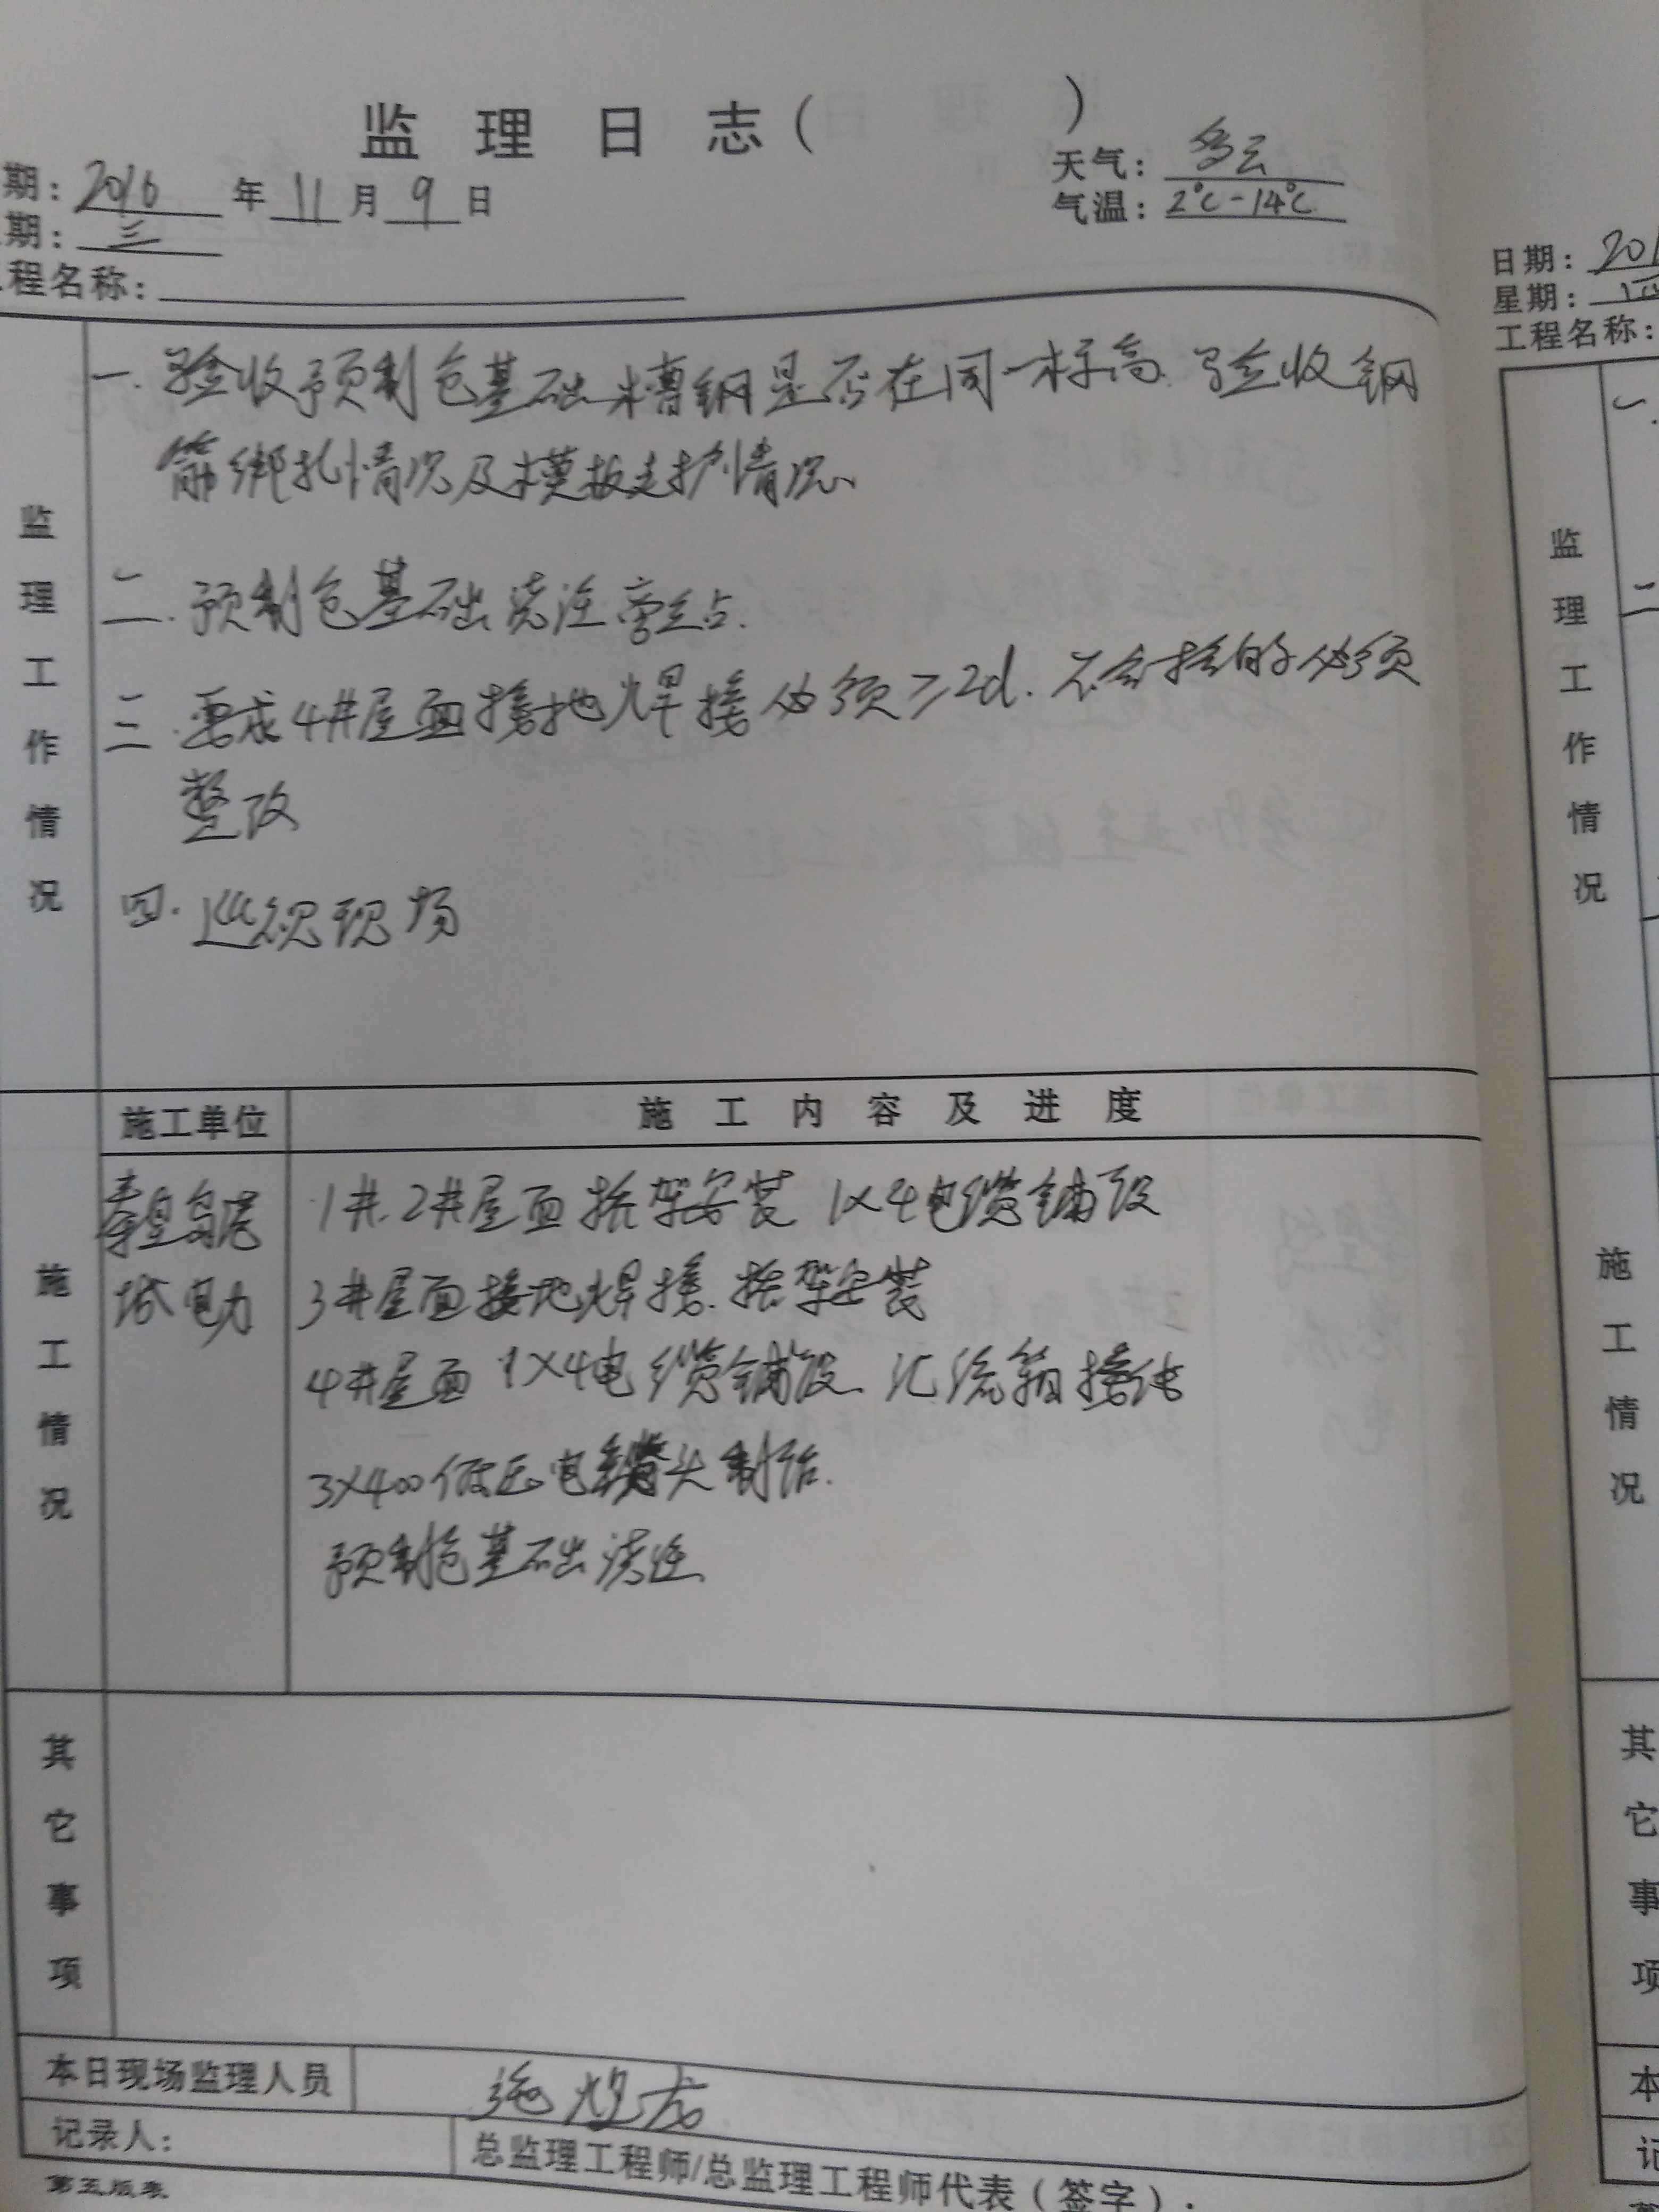 监理日志( )
期: 2016 年 11 月 9 日
天气: 多云
期: 三
气温: 2℃-14℃
程名称:
监理工作情况
一. 验收预制仓基础槽钢是否在同一标高. 验收钢
筋绑扎情况及模板支护情况.
二. 预制仓基础浇注旁站.
三. 要求4#屋面接地焊接必须≥2d. 不合格的必须
整改
四. 巡视现场
施工情况
施工单位
施工内容及进度
秦皇岛
电力
1#.2#屋面桥架安装 1×4电缆铺设
3#屋面接地焊接. 桥架安装
4#屋面 1×4电缆铺设. 汇流箱接线
3×400低压电缆头制作.
预制仓基础浇注.
其它事项
本日现场监理人员
记录人:
总监理工程师/总监理工程师代表(签字):
第五版表
日期: 201
星期: 四
工程名称:
一.
二
监理工作情况
施工情况
其它事项
本
记